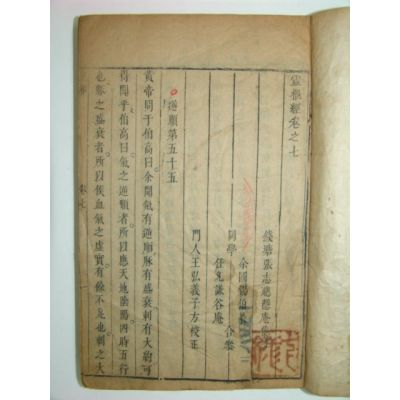 靈樞經卷之七
錢塘張志聰隱庵
同學
余國錫
任允謙谷庵
合參
門人王弘義子方校正
逆順第五十五
黃帝問于伯高曰余聞氣有逆順脉有盛衰刺有大約可
得聞乎伯高曰氣之逆順者所以應天地陰陽四時五行
也脉之盛衰者所以候血氣之虛實有餘不足也刺之大
卷七